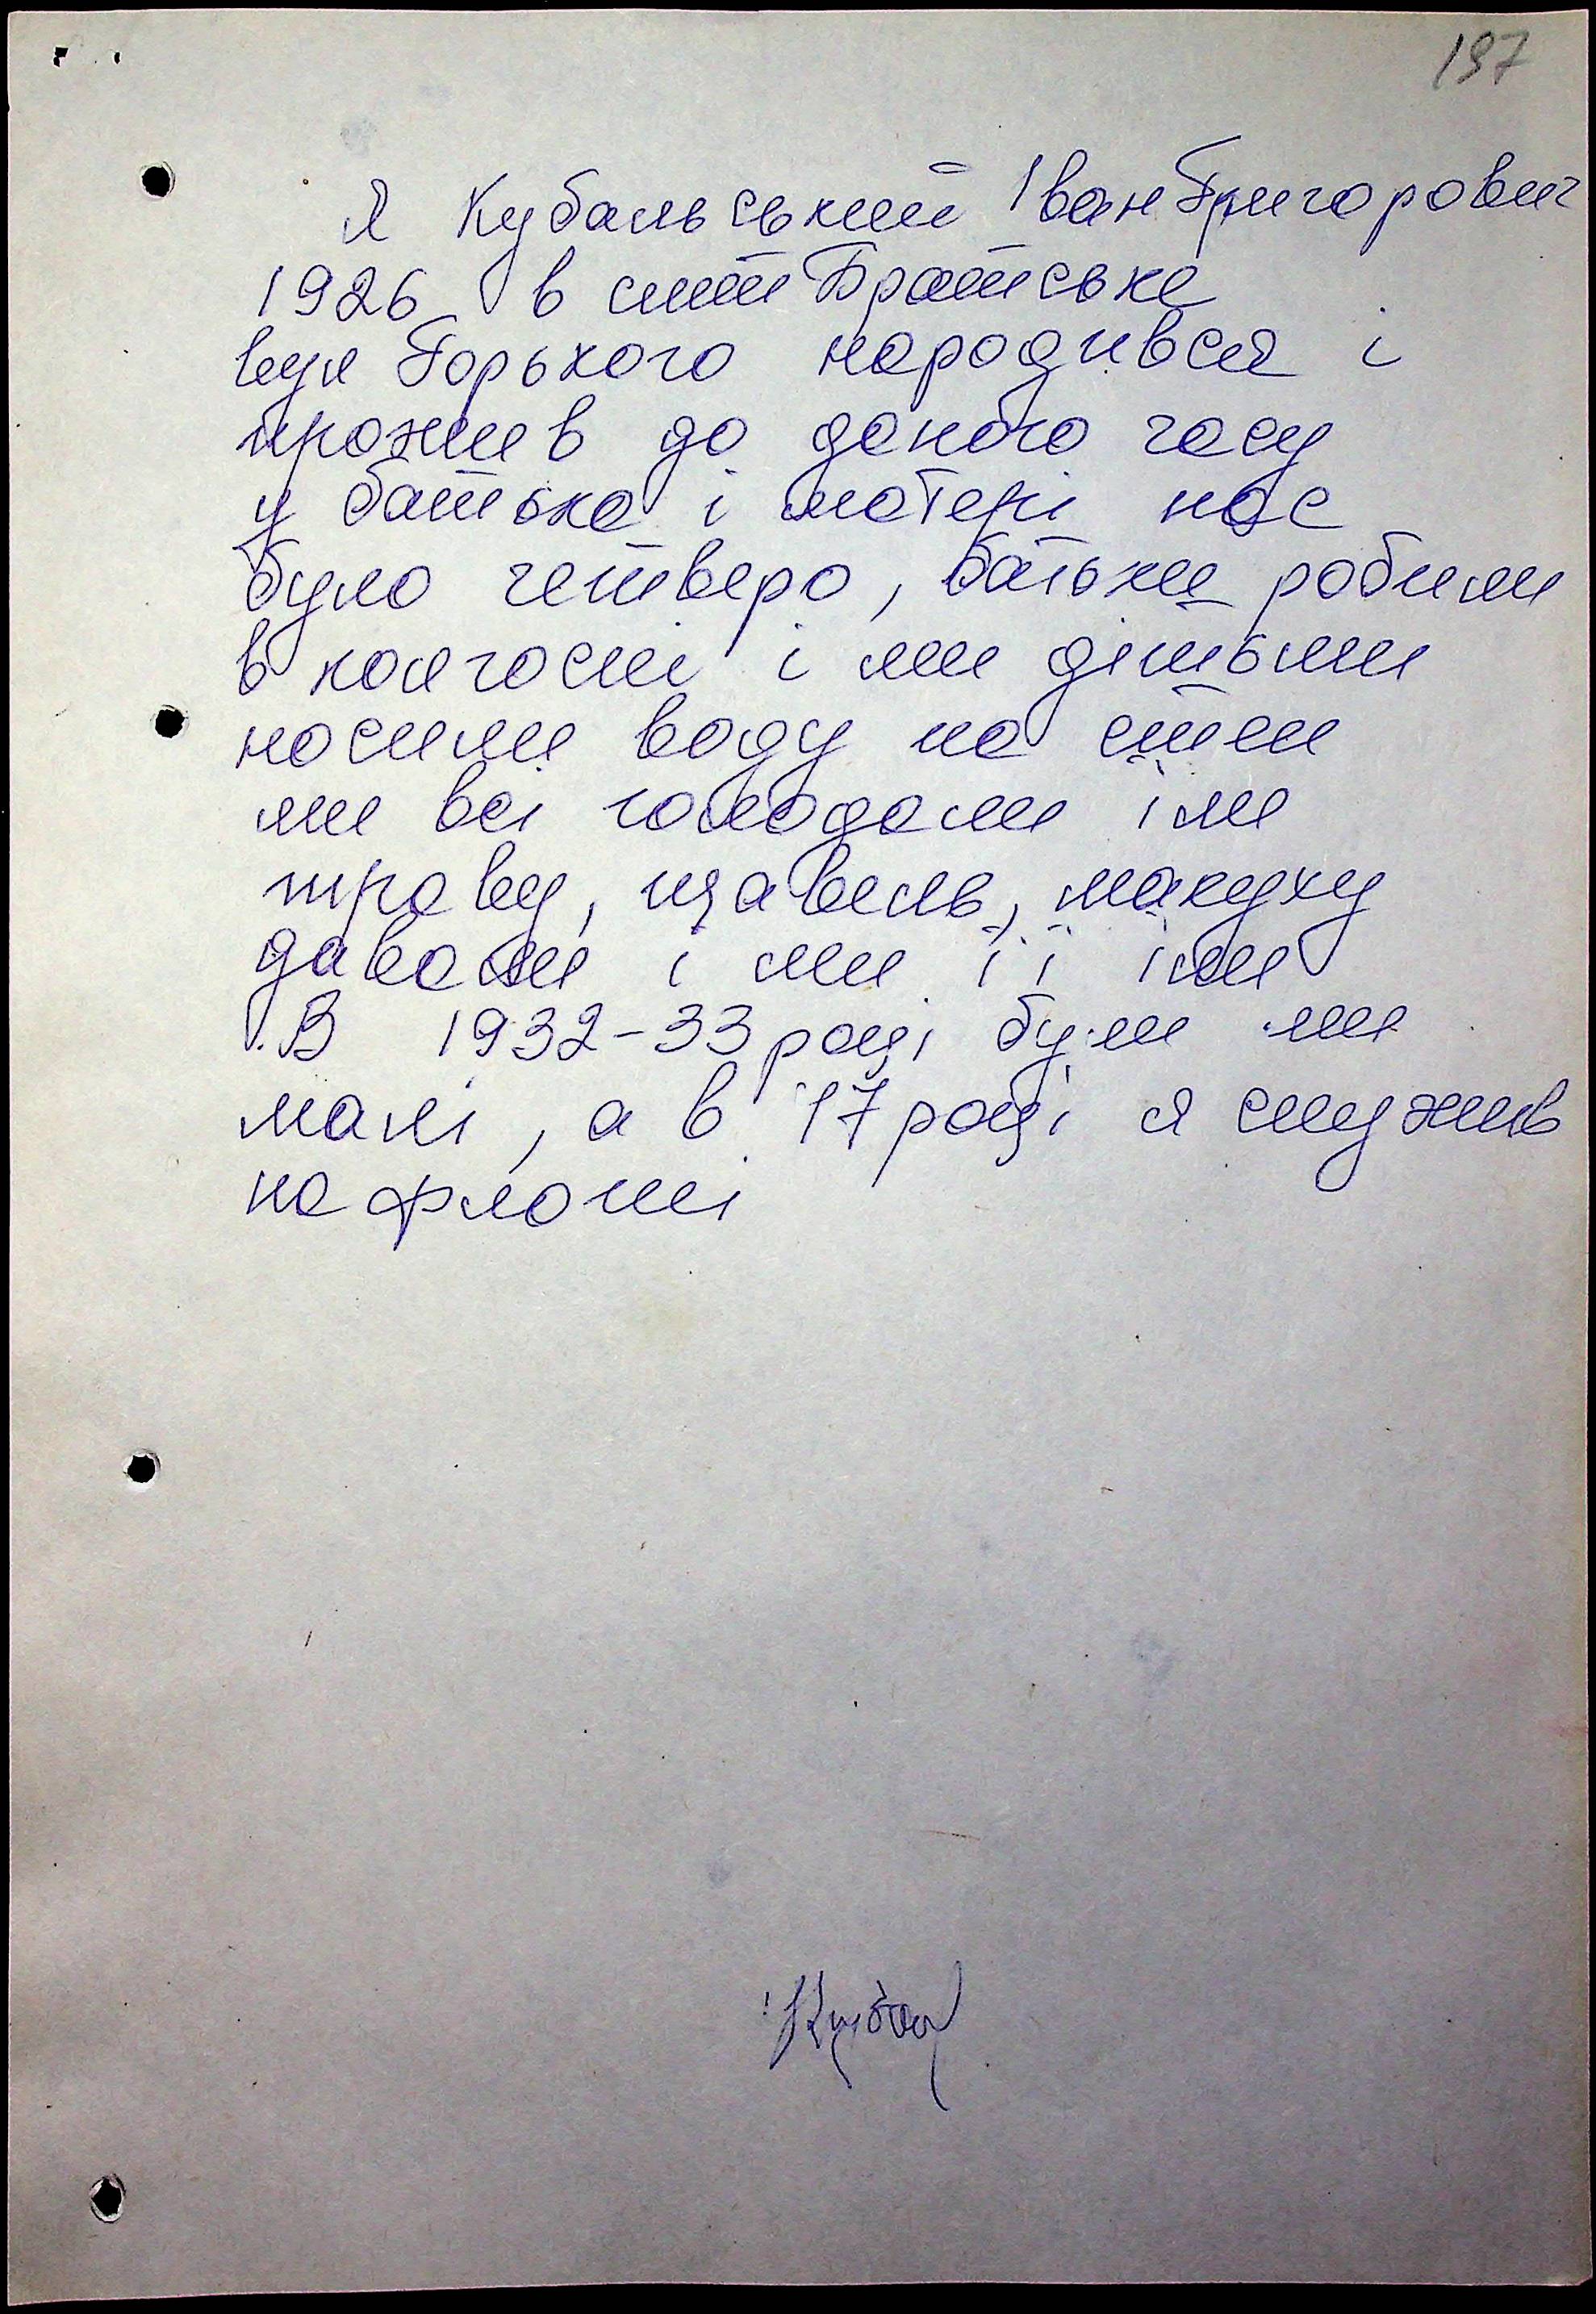 197
Я Кубальський Іван Григорович
1926 в смт Братське
вул Горького народився і
прожив до даного часу
у батька і матері нас
було четверо, батьки робили
в колгоспі і ми дітьми
носили воду на степ
ми всі голодали їли
траву, щавель, макуху
давали і ми її їли
В 1932-33 році були ми
малі, а в 17 році я служив
на флоті